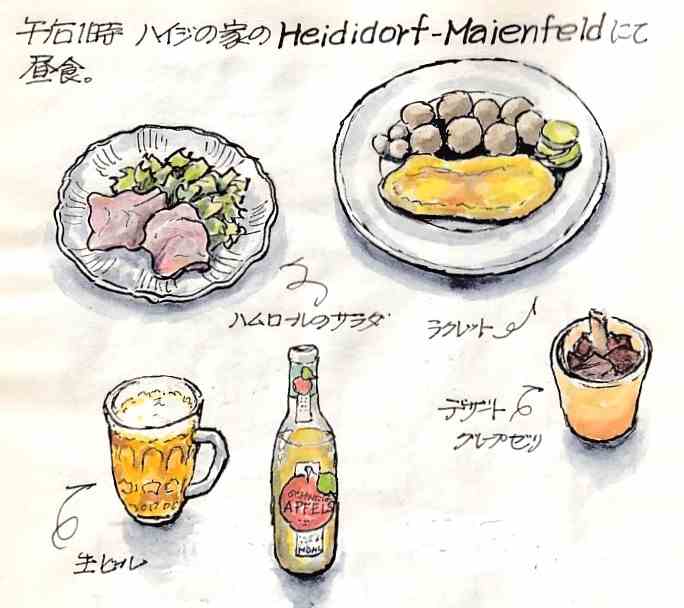 午后1時 ハイジの家のHeididorf-Maienfeldにて
昼食。
ハムロールのサラダ
ラクレット
デザート
グレープゼリ
生ビール
APFELS
MÖHL